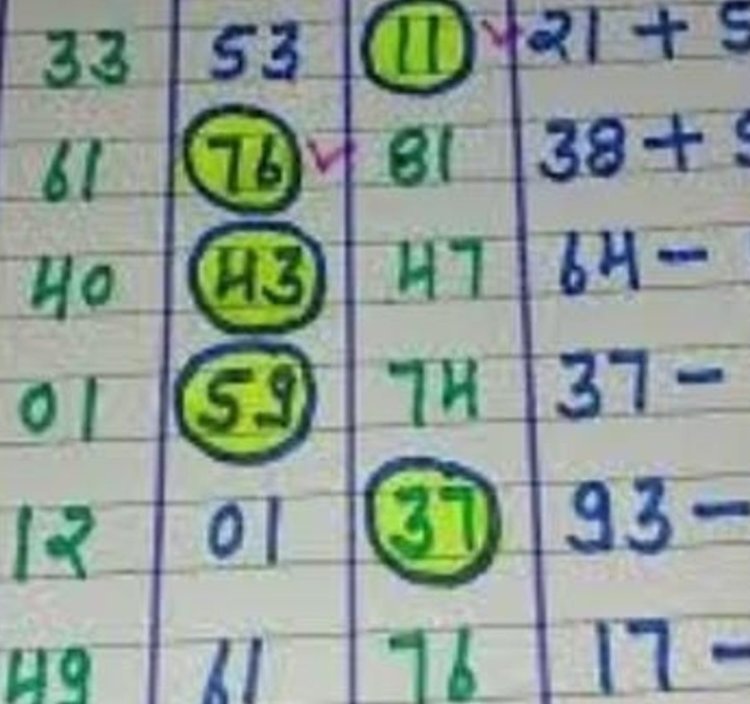 33 53 11 21 +
61 76 81 38 +
40 43 47 64 -
01 59 74 37 -
12 01 37 93 -
49 61 76 17 -